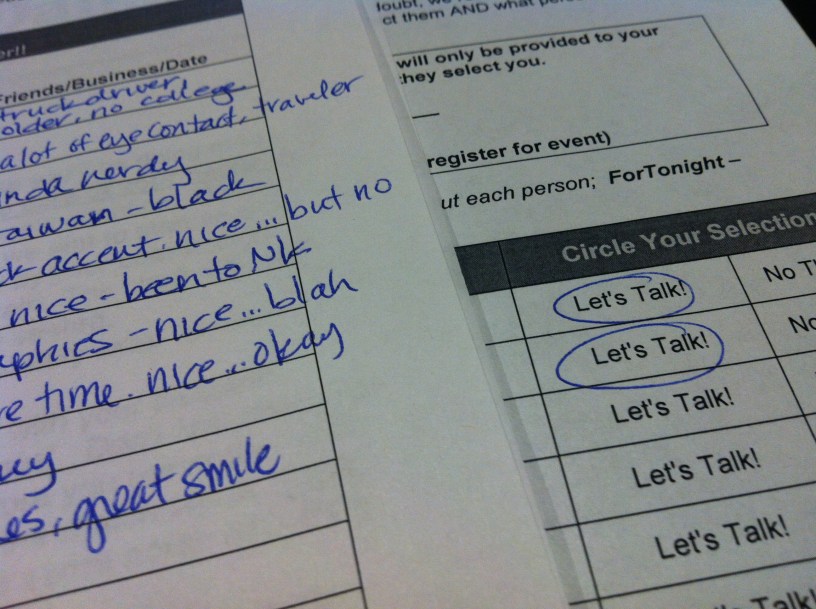 Friends/Business/Date
truck driver,
older, no college
a lot of eye contact, traveler
nerdy
- black
accent. nice... but no
nice - been to NK
- nice... blah
time. nice... okay
great smile
ct them AND what
will only be provided to your
they select you.
register for event)
each person; ForTonight –
Circle Your Selection
Let's Talk!
Let's Talk!
Let's Talk!
Let's Talk!
Let's Talk!